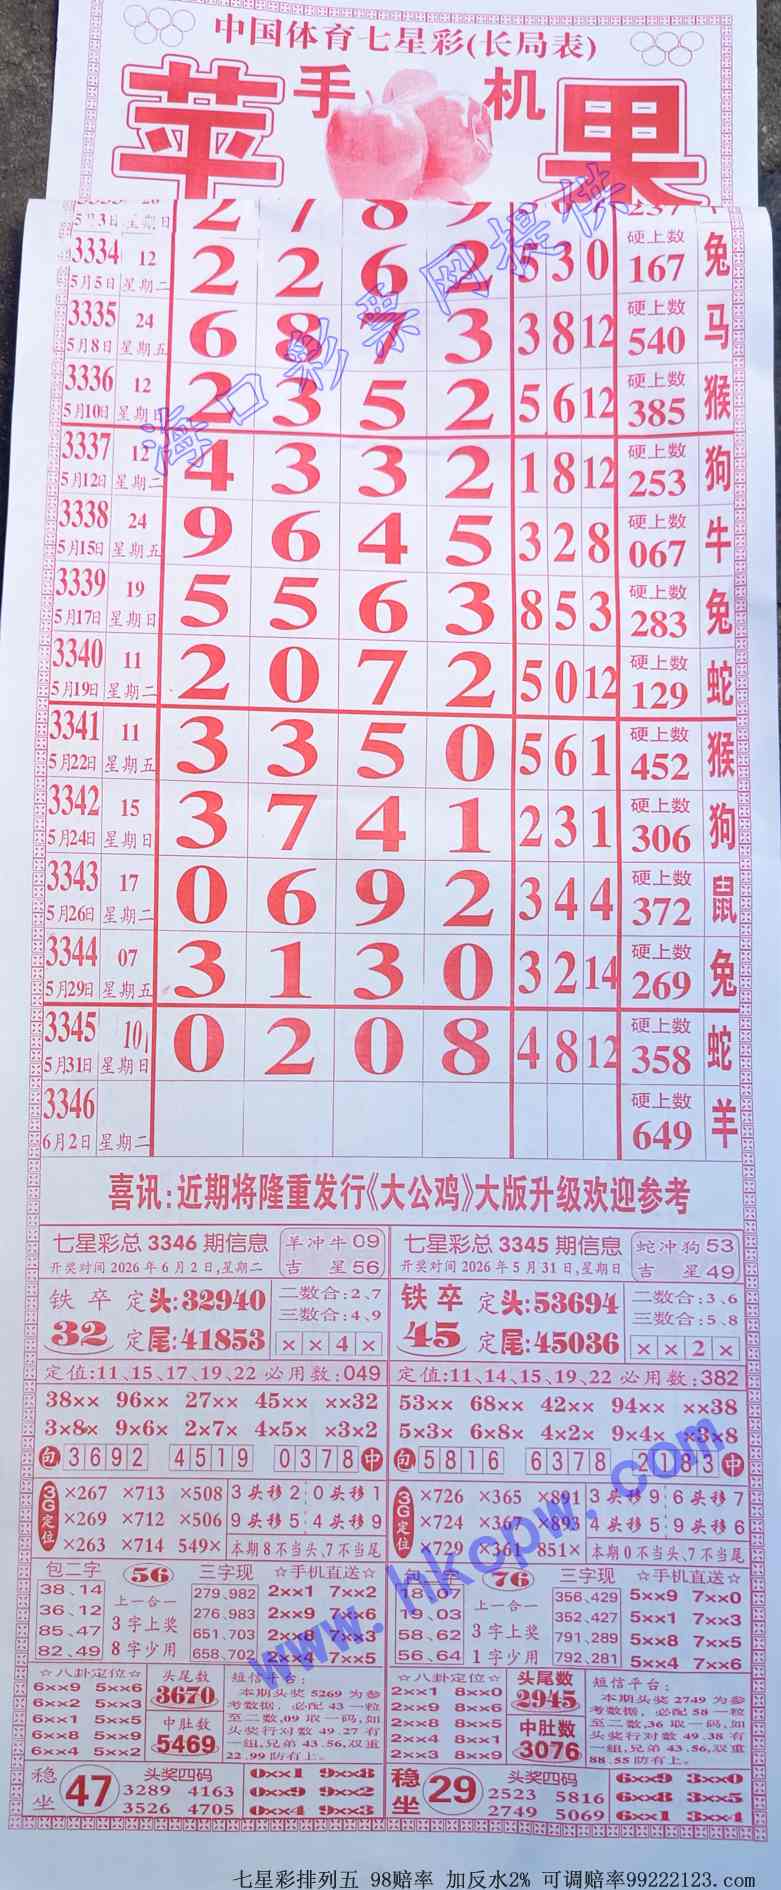 中国体育七星彩(长局表)
苹 手 机 果
5月3日 星期日 2 7 8 9 237
3334 12 硬上数
5月5日 星期二 2 2 6 2 5 3 0 167 兔
3335 24 硬上数
5月8日 星期五 6 8 7 3 3 8 12 540 马
3336 12 硬上数
5月10日 星期日 2 3 5 2 5 6 12 385 猴
3337 12 硬上数
5月12日 星期二 4 3 3 2 1 8 12 253 狗
3338 24 硬上数
5月15日 星期五 9 6 4 5 3 2 8 067 牛
3339 19 硬上数
5月17日 星期日 5 5 6 3 8 5 3 283 兔
3340 11 硬上数
5月19日 星期二 2 0 7 2 5 0 12 129 蛇
3341 11 硬上数
5月22日 星期五 3 3 5 0 5 6 1 452 猴
3342 15 硬上数
5月24日 星期日 3 7 4 1 2 3 1 306 狗
3343 17 硬上数
5月26日 星期二 0 6 9 2 3 4 4 372 鼠
3344 07 硬上数
5月29日 星期五 3 1 3 0 3 2 14 269 兔
3345 10 硬上数
5月31日 星期日 0 2 0 8 4 8 12 358 蛇
3346 硬上数
6月2日 星期二 649 羊
海口彩票网提供
喜讯:近期将隆重发行《大公鸡》大版升级欢迎参考
七星彩总 3346 期信息 羊冲牛 09
开奖时间 2026 年 6 月 2 日,星期二 吉 星 56
铁 卒 定头:32940 二数合:2、7
三数合:4、9
32 定尾:41853 × × 4 ×
定值:11、15、17、19、22 必用数:049
38×× 96×× 27×× 45×× ××32
3×8× 9×6× 2×7× 4×5× ×3×2
包 3692 4519 0378 中
3G定位 ×267 ×713 ×508 3头移2 0头移1
×269 ×712 ×506 9头移5 4头移9
×263 ×714 549× 本期8不当头、7不当尾
包二字 56 三字现 ☆手机直送☆
38、14 上一合一 279、982 2××1 7××2
36、12 3字上奖 276、983 2××9 7××6
85、47 8字少用 651、703 2××8 7××3
82、49 658、702 2××4 7××5
☆八卦定位☆ 头尾数 短信平台:
6××9 5××6 3670 本期头奖 5269 为参
6××2 5××3 考数据，必配 43 一粒
6××1 5××5 中肚数 至二数,09 取一码,如
6××8 5××9 5469 头奖行对数 49.27 有
6××4 5××2 一组,兄弟 43.56,双重
22.99 防有上。
稳坐 47 头奖四码 0××1 9××8
3289 4163 0××9 9××2
3526 4705 0××4 9××3
七星彩总 3345 期信息 蛇冲狗 53
开奖时间 2026 年 5 月 31 日,星期日 吉 星 49
铁 卒 定头:53694 二数合:3、6
三数合:5、8
45 定尾:45036 × × 2 ×
定值:11、14、15、19、22 必用数:382
53×× 68×× 42×× 94×× ××38
5×3× 6×8× 4×2× 9×4× ×3×8
包 5816 6378 2183 中
3G定位 ×726 ×365 ×891 3头移9 6头移7
×724 ×367 ×893 4头移5 9头移6
×729 ×361 851× 本期0不当头、7不当尾
包二字 76 三字现 ☆手机直送☆
18、07 上一合一 356、429 5××9 7××0
19、03 3字上奖 352、427 5××1 7××3
58、62 1字少用 791、289 5××8 7××5
56、64 792、281 5××4 7××6
☆八卦定位☆ 头尾数 短信平台:
2××1 8××0 2945 本期头奖 2749 为参
2××9 8××6 考数据，必配 58 一粒
2××8 8××5 中肚数 至二数,36 取一码,如
2××4 8××1 3076 头奖行对数 49.38 有
2××3 8××9 一组,兄弟 43.56,双重
88.55 防有上。
稳坐 29 头奖四码 6××9 3××0
2523 5816 6××8 3××5
2749 5069 6××1 3××4
www.hkcpw.com
七星彩排列五 98赔率 加反水2% 可调赔率99222123.com